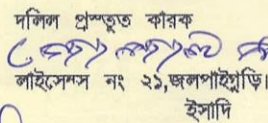 দলিল প্রস্তুত কারক
লাইসেন্স নং ২১,জলপাইগুড়ি।
ইসাদি